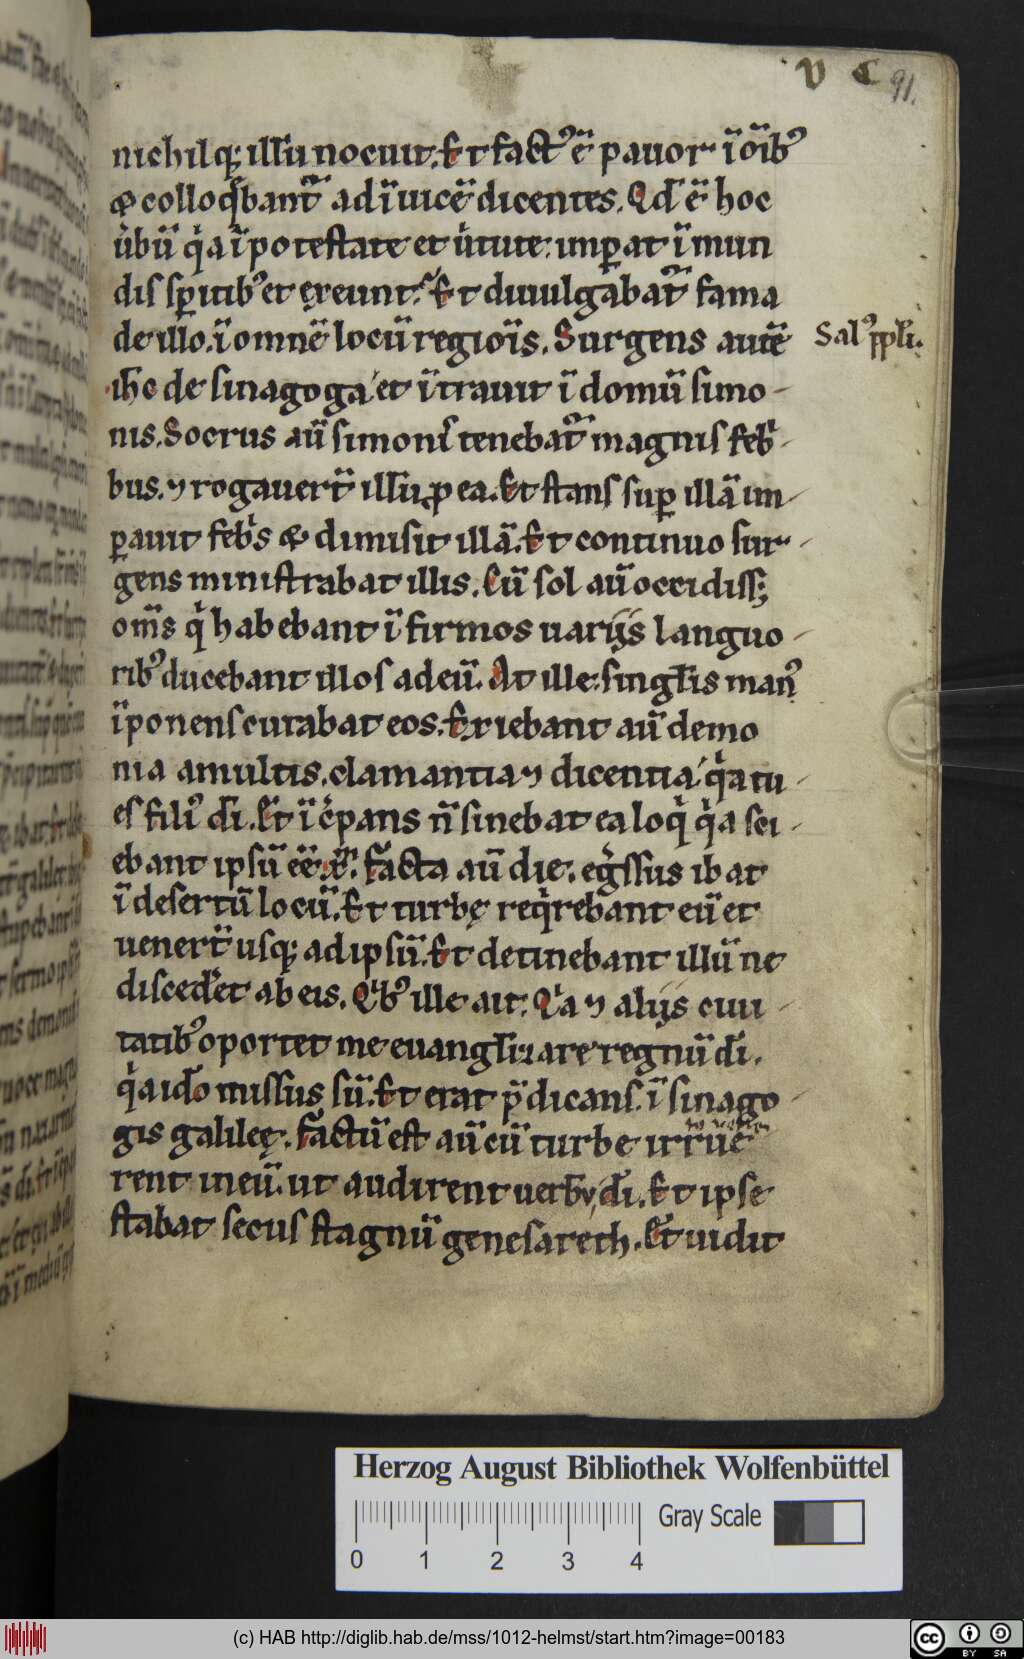 V C 91.
nichilq; illu̅ nocuit. Et fact᾽ e̅ pauor i̅ o̅ib᾽
& colloq̇bant᷑ ad i̅uice̅ dicentes. Qd̅ e̅ hoc
u̇bu̅ q̇a i̅ potestate et u̇tute. imp̱at i̅mun
dis sp̱itib᾽ et exeunt. Et diuulgabat᷑ fama
de illo. i̅ omne̅ locu̅ regiοi̅s. Surgens aute̅
Sal᾽ pp̱li.
ih̅c de sinagoga et i̅trauit i̅ domu̅ simo-
nis. Socrus au̅ simonis tenebat᷑ magnis feb̍-
bus. ⁊ rogauert̅ illu̅ ꝓ ea. Et stans sup̱ illa̅ im-
p̱auit feb̍s & dimisit illa̅. Et continuo sur-
gens ministrabat illis. Cu̅ sol au̅ occidiss;
om̅s q̇ habebant i̅firmos uarijs languo-
rib᾽ ducebant illos ad eu̅. At ille singl̅is man᾽
i̅ponens curabat eos. Exiebant au̅ demo
nia a multis. clamantia ⁊ dicentia q̇a tu-
es fili᾽ di̅. Et i̅c̍pans n̅ sinebat ea loq̇ q̇a sci-
ebant ipsu̅ ee̅ xp̅m. Facta au̅ die. eg̍ssus ibat
i̅ desertu̅ locu̅. Et turbę req̇rebant eu̅ et
uenert̅ usq; ad ipsu̅. Et detinebant illu̅ ne
disced̍et ab eis. Q̇b᾽ ille ait. Q̇a ⁊ alijs ciui-
tatib᾽ oportet me euangl̅izare regnu̅ di̅.
q̇a ido̅ missus su̅. Et erat p̅dicans. i̅ sinago-
gis galileę. Factu̅ est au̅ cu̅ turbe irrue̅
rent in eu̅. ut audirent uerbu̅ di̅. Et ipse
stabat secus stagnu̅ genesareth. Et uidit
Herzog August Bibliothek Wolfenbüttel
Gray Scale
0 1 2 3 4
(c) HAB http://diglib.hab.de/mss/1012-helmst/start.htm?image=00183
cc BY SA